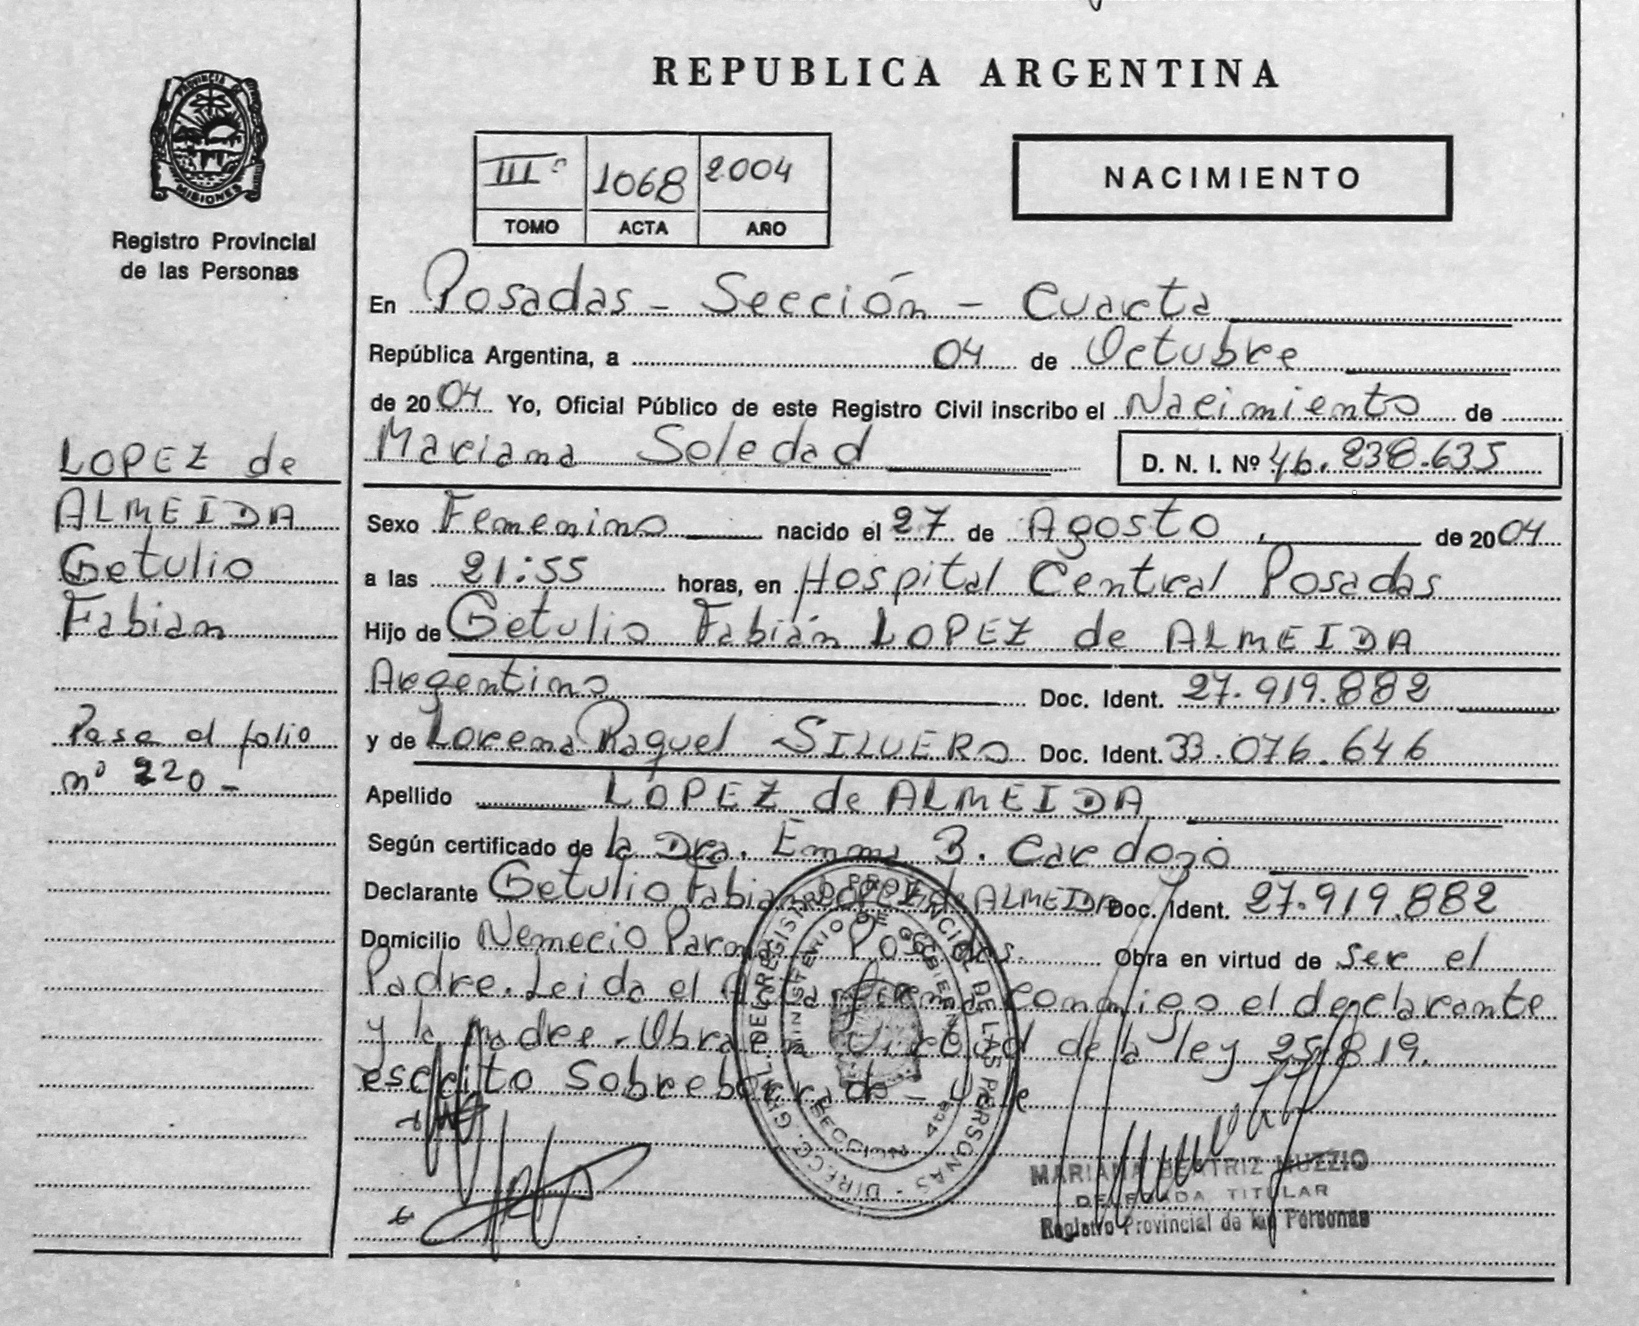 REPUBLICA ARGENTINA
PROVINCIA DE
MISIONES
Registro Provincial
de las Personas
III° 1068 2.004
TOMO ACTA AÑO
NACIMIENTO
En Posadas - Sección - Cuarta
República Argentina, a 04 de Octubre
de 2004 Yo, Oficial Público de este Registro Civil inscribo el Nacimiento de
Mariana Soledad D. N. I. Nº 46.238.635
LOPEZ de
ALMEIDA
Getulio
Fabian
Pasa al folio
nº 220-
Sexo Femenino nacido el 27 de Agosto de 2004
a las 21:55 horas, en Hospital Central Posadas
Hijo de Getulio Fabián LOPEZ de ALMEIDA
Argentino Doc. Ident. 27.919.882
y de Lorena Raquel SILVERO Doc. Ident. 33.076.646
Apellido LOPEZ de ALMEIDA
Según certificado de la Dra. Emma B. Cardozo
Declarante Getulio Fabian LOPEZ de ALMEIDA Doc. Ident. 27.919.882
Domicilio Nemecio Parma Posadas. Obra en virtud de ser el
Padre. Leida el Acta firma conmigo el declarante
y la madre - Obra en Virtud de la ley 25.819.
escrito Sobreborrado - Vale
DIRECC. GRAL. DEL REGISTRO PROVINCIAL DE LAS PERSONAS
MINISTERIO DE GOBIERNO
SECCION 4ta
MARIANA BEATRIZ MUZZIO
DELEGADA TITULAR
Registro Provincial de las Personas